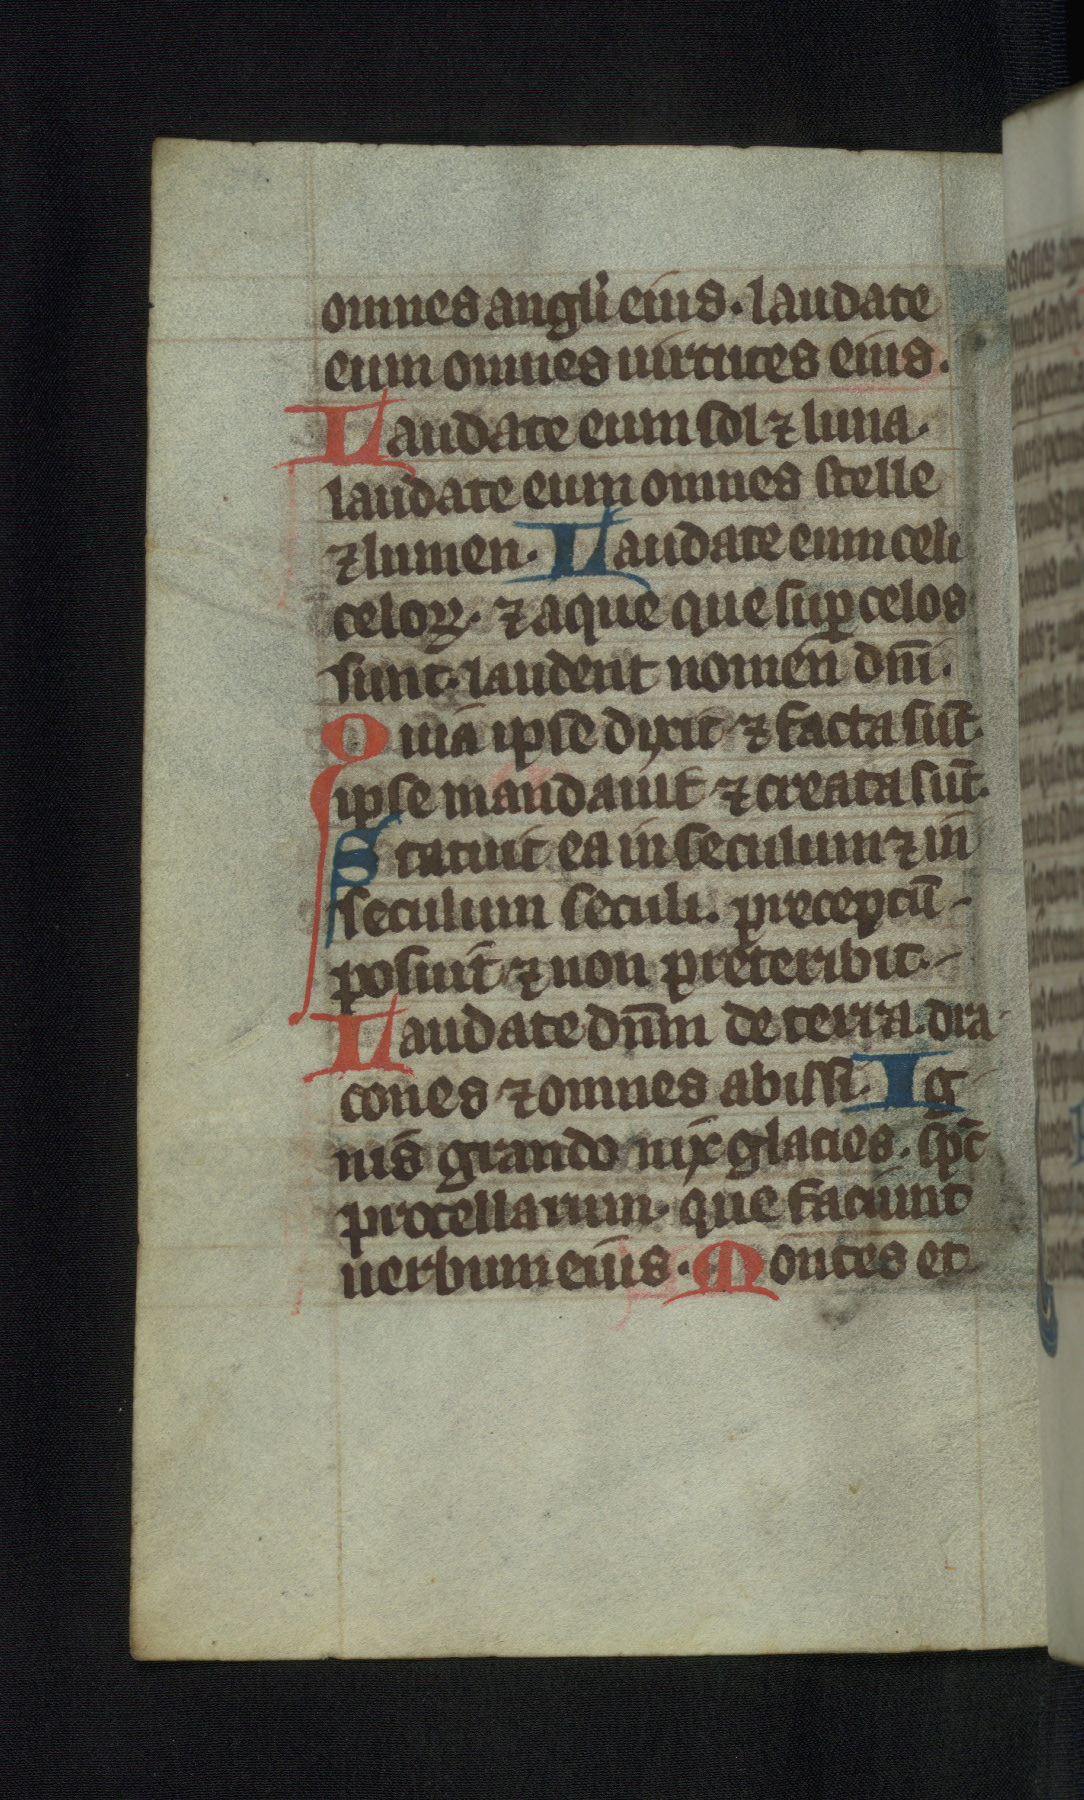 omnes angl'i eius. laudate
eum omnes uirtutes eius.
Laudate eum sol ⁊ luna.
laudate eum omnes stelle
⁊ lumen. Laudate eum celi
celoꝝ. ⁊ aque que suꝑ celos
sunt. laudent nomen dnī.
Quia ipse dixit ⁊ facta sūt.
ipse mandauit ⁊ creata sūt.
Statuit ea in seculum ⁊ in
seculum seculi. preceptū
posuit ⁊ non preteribit.
Laudate dn̄m de terra. dra
cones ⁊ omnes abissi. Ig
nis grando nix glacies. spc̄
procellarum. que faciunt
uerbum eius. Montes et